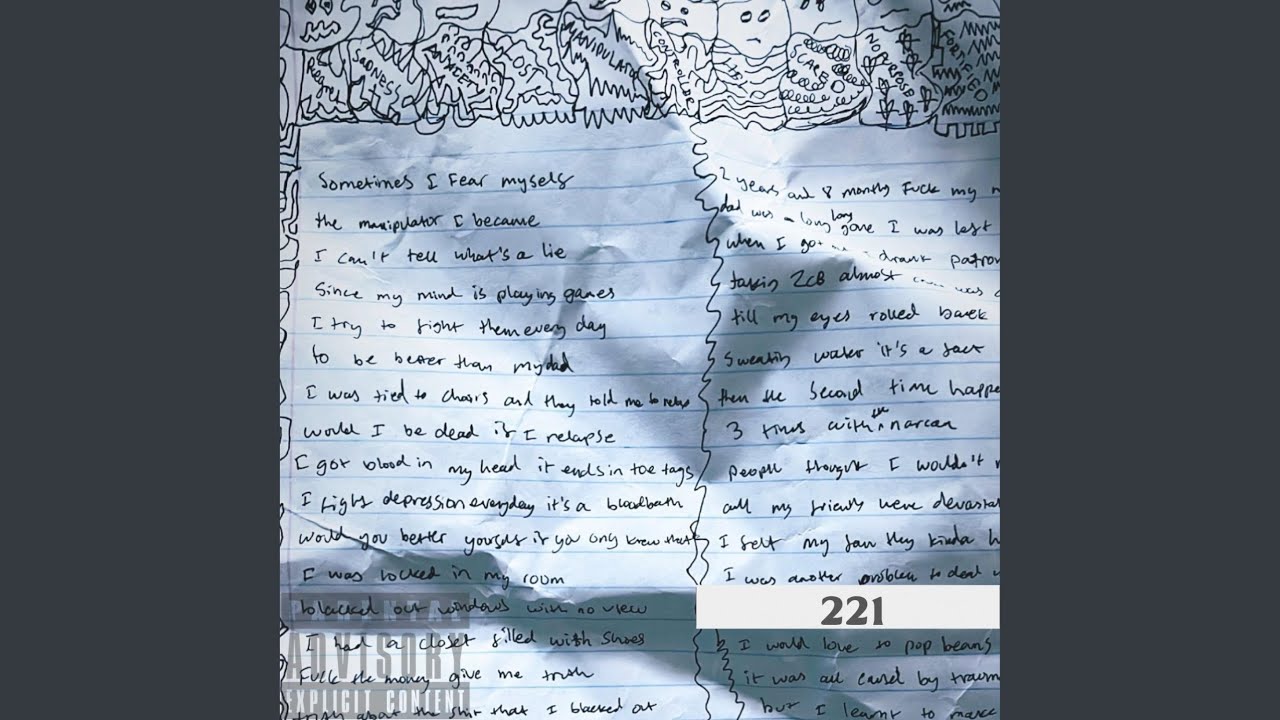 Regret
SADNESS
LOST
MANIPULATOR
SCARED
NO PURPOSE
Sometimes I Fear myself
the manipulator I became
I can't tell what's a lie
Since my mind is playing games
I try to fight them every day
to be better than my dad
I was tied to chairs and they told me to relax
would I be dead if I relapse
I got blood in my head it ends in toe tags
I fight depression everyday it's a bloodbath
would you better yourself if you only knew that
I was locked in my room
blacked out windows with no view
I had a closet filled with shoes
Fuck the money give me truth
truth about the shit that I blacked out
2 years and 8 months Fuck my
dad was a long long gone I was lost
when I got drank patron
taking 2CB almost
till my eyes rolled back
Sweating water it's a fact
then the Second time happe
3 times with the narcan
people thought I wouldn't
all my friends were devasta
I felt my fam they kinda h
I was another problem to deal w
221
I would love to pop beans
it was all caused by traum
but I learnt to
PARENTAL
ADVISORY
EXPLICIT CONTENT